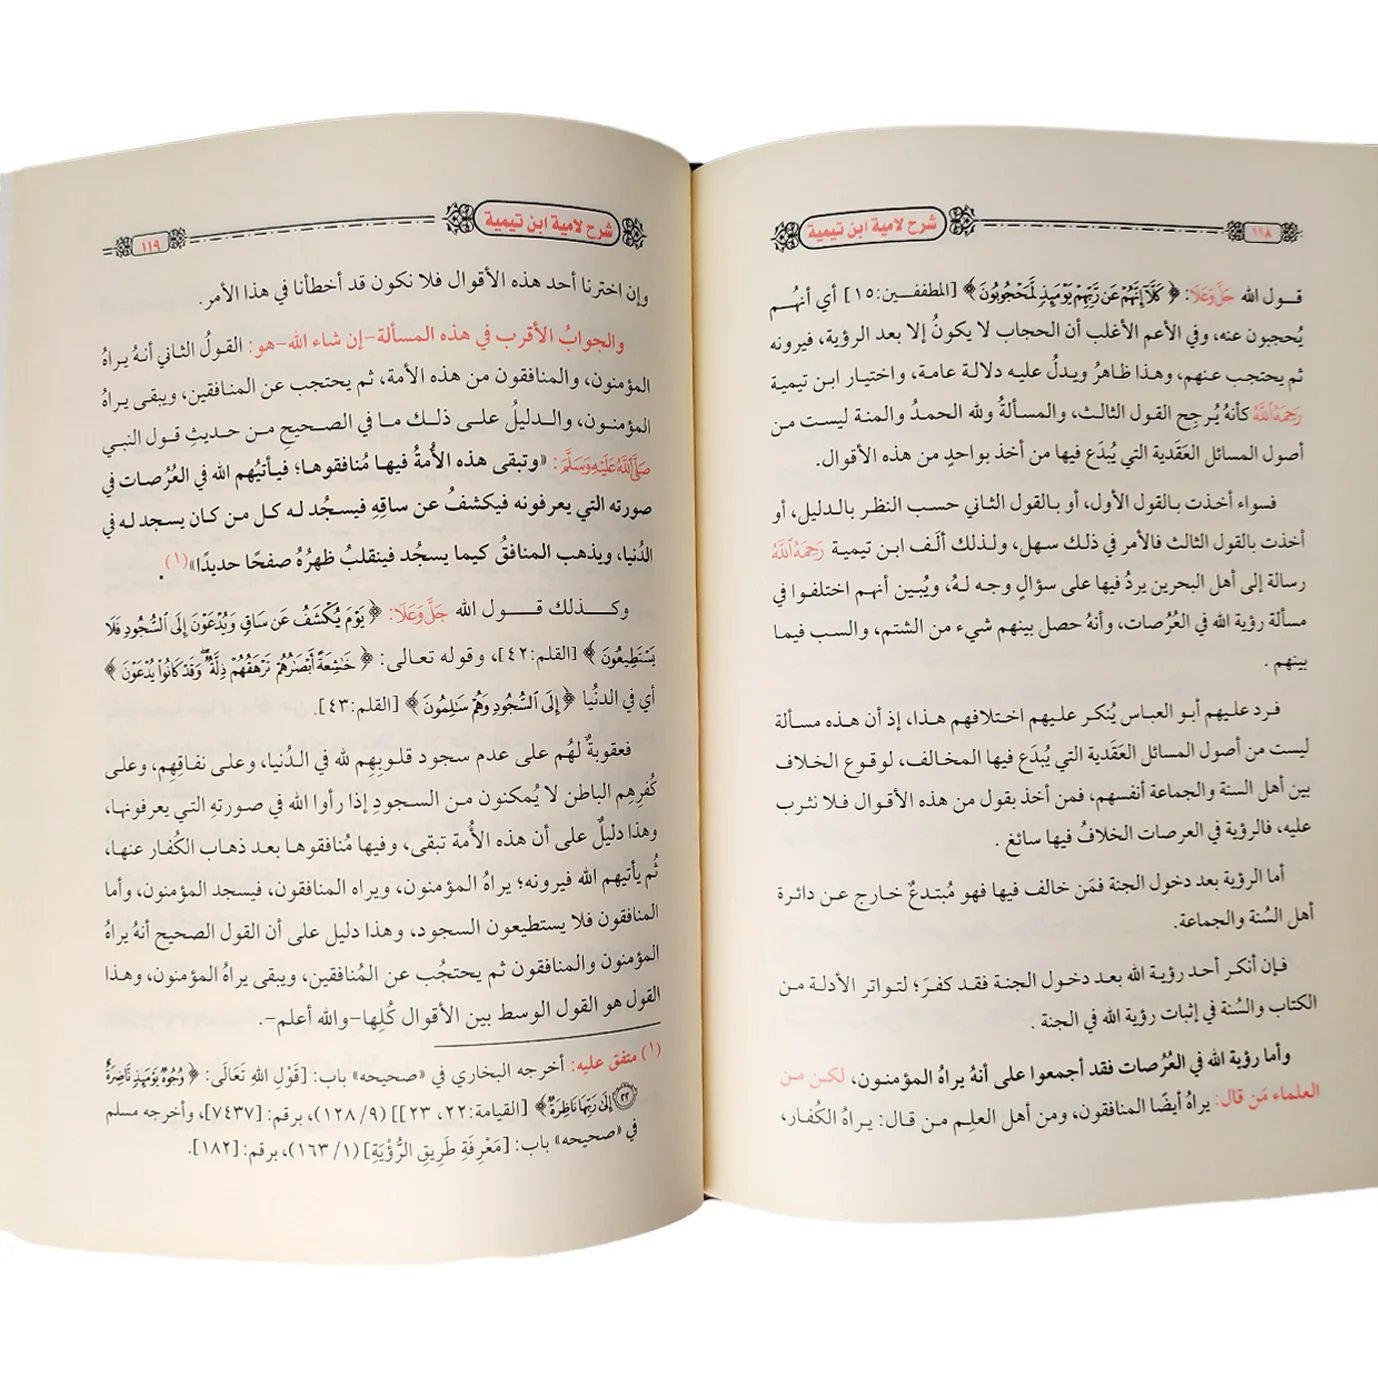 ١١٨
شرح لامية ابن تيمية
قـول الله جَلَّ وَعَلَا: ﴿كَلَّا إِنَّهُمْ عَن رَّبِّهِمْ يَوْمَئِذٍ لَّمَحْجُوبُونَ﴾ [المطففين:١٥] أي أنهُم
يُحجبون عنه، وفي الأعم الأغلب أن الحجاب لا يكونُ إلا بعد الرؤية، فيرونه
ثم يحتجب عنهم، وهذا ظاهرُ ويدلُ عليه دلالة عامة، واختيار ابن تيمية
رَحِمَهُ ٱللَّهُ كأنهُ يُرجِح القول الثالث، والمسألةُ ولله الحمدُ والمنة ليست من
أصول المسائل العَقَدية التي يُبدَع فيها من أخذ بواحدٍ من هذه الأقوال.
فسواء أخذت بالقول الأول، أو بالقول الثاني حسب النظر بالدليل، أو
أخذت بالقول الثالث فالأمر في ذلك سهل، ولذلك ألَف ابن تيمية رَحِمَهُ ٱللَّهُ
رسالة إلى أهل البحرين يردُ فيها على سؤالٍ وجه لهُ، ويُبين أنهم اختلفوا في
مسألة رؤية الله في العُرُصات، وأنهُ حصل بينهم شيء من الشتم، والسب فيما
بينهم .
فرد عليهم أبو العباس يُنكر عليهم اختلافهم هذا، إذ أن هذه مسألة
ليست من أصول المسائل العَقَدية التي يُبدَع فيها المخالف، لوقوع الخلاف
بين أهل السنة والجماعة أنفسهم، فمن أخذ بقول من هذه الأقوال فلا نثرب
عليه، فالرؤية في العرصات الخلافُ فيها سائغ .
أما الرؤية بعد دخول الجنة فمَن خالف فيها فهو مُبتدعٌ خارج عن دائرة
أهل السُنة والجماعة.
فإن أنكر أحد رؤية الله بعد دخول الجنة فقد كفرَ؛ لتواتر الأدلة من
الكتاب والسُنة في إثبات رؤية الله في الجنة .
وأما رؤية الله في العُرُصات فقد أجمعوا على أنهُ يراهُ المؤمنون، لكن من
العلماء مَن قال: يراهُ أيضًا المنافقون، ومن أهل العلِم من قال: يراهُ الكُفار،
شرح لامية ابن تيمية
١١٩
وإن اخترنا أحد هذه الأقوال فلا نكون قد أخطأنا في هذا الأمر.
والجوابُ الأقرب في هذه المسألة-إن شاء الله-هو: القولُ الثاني أنهُ يراهُ
المؤمنون، والمنافقون من هذه الأمة، ثم يحتجب عن المنافقين، ويبقى يراهُ
المؤمنون، والدليلُ على ذلك ما في الصحيحِ من حديثِ قول النبي
صَلَّى ٱللَّهُ عَلَيْهِ وَسَلَّمَ: «وتبقى هذه الأُمةُ فيها مُنافقوها؛ فيأتيُهم الله في العُرُصات في
صورته التي يعرفونه فيكشفُ عن ساقِهِ فيسجُد له كل من كان يسجد له في
الدُنيا، ويذهب المنافقُ كيما يسجُد فينقلبُ ظهرُهُ صفحًا حديدًا»(١).
وكـذلك قـول الله جَلَّ وَعَلَا: ﴿يَوْمَ يُكْشَفُ عَن سَاقٍ وَيُدْعَوْنَ إِلَى ٱلسُّجُودِ فَلَا
يَسْتَطِيعُونَ﴾ [القلم:٤٢]، وقوله تعالى: ﴿خَٰشِعَةً أَبْصَٰرُهُمْ تَرْهَقُهُمْ ذِلَّةٌ ۖ وَقَدْ كَانُوا۟ يُدْعَوْنَ﴾
أي في الدنُيا ﴿إِلَى ٱلسُّجُودِ وَهُمْ سَٰلِمُونَ﴾ [القلم:٤٣].
فعقوبةٌ لهُم على عدم سجود قلوبِهِم لله في الدُنيا، وعلى نفاقِهِم، وعلى
كُفرِهِم الباطن لا يُمكنون من السجودِ إذا رأوا الله في صورتهِ التي يعرفونها،
وهذا دليلٌ على أن هذه الأُمة تبقى، وفيها مُنافقوها بعد ذهاب الكُفار عنها،
ثُم يأتيهم الله فيرونه؛ يراهُ المؤمنون، ويراه المنافقون، فيسجد المؤمنون، وأما
المنافقون فلا يستطيعون السجود، وهذا دليل على أن القول الصحيح أنهُ يراهُ
المؤمنون والمنافقون ثم يحتجُب عن المُنافقين، ويبقى يراهُ المؤمنون، وهذا
القول هو القول الوسط بين الأقوال كُلِها-والله أعلم-.
(١) متفق عليه: أخرجه البخاري في «صحيحه» باب: [قَوْلِ اللهِ تَعَالَى: ﴿وُجُوهٌ يَوْمَئِذٍ نَّاضِرَةٌ
٢٢ إِلَىٰ رَبِّهَا نَاظِرَةٌ﴾ [القيامة:٢٢، ٢٣]] (٩/ ١٢٨)، برقم: [٧٤٣٧]، وأخرجه مسلم
في «صحيحه» باب: [مَعْرِفَةِ طَرِيقِ الرُّؤْيَةِ] (١/ ١٦٣)، برقم: [١٨٢].